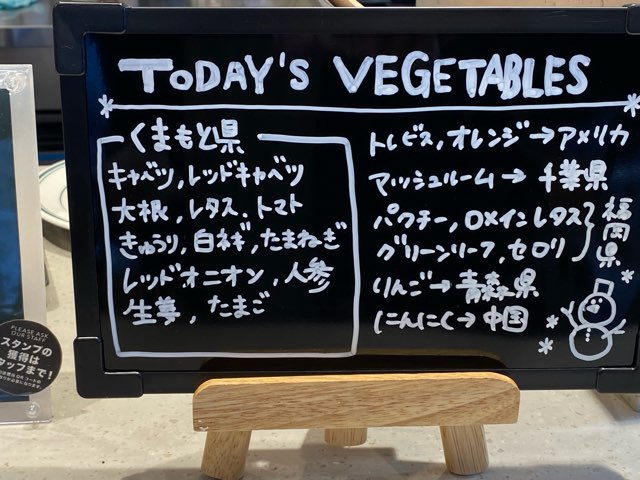 TODAY'S VEGETABLES
くまもと県
キャベツ,レッドキャベツ
大根,レタス.トマト
きゅうり,白ネギ,たまねぎ
レッドオニオン,人参
生姜,たまご
トレビス,オレンジ→アメリカ
マッシュルーム→千葉県
パクチー,ロメインレタス
グリーンリーフ,セロリ
福岡県
りんご→青森県
にんにく→中国
PLEASE ASK
OUR STAFF
スタンプの
獲得は
タッフまで!